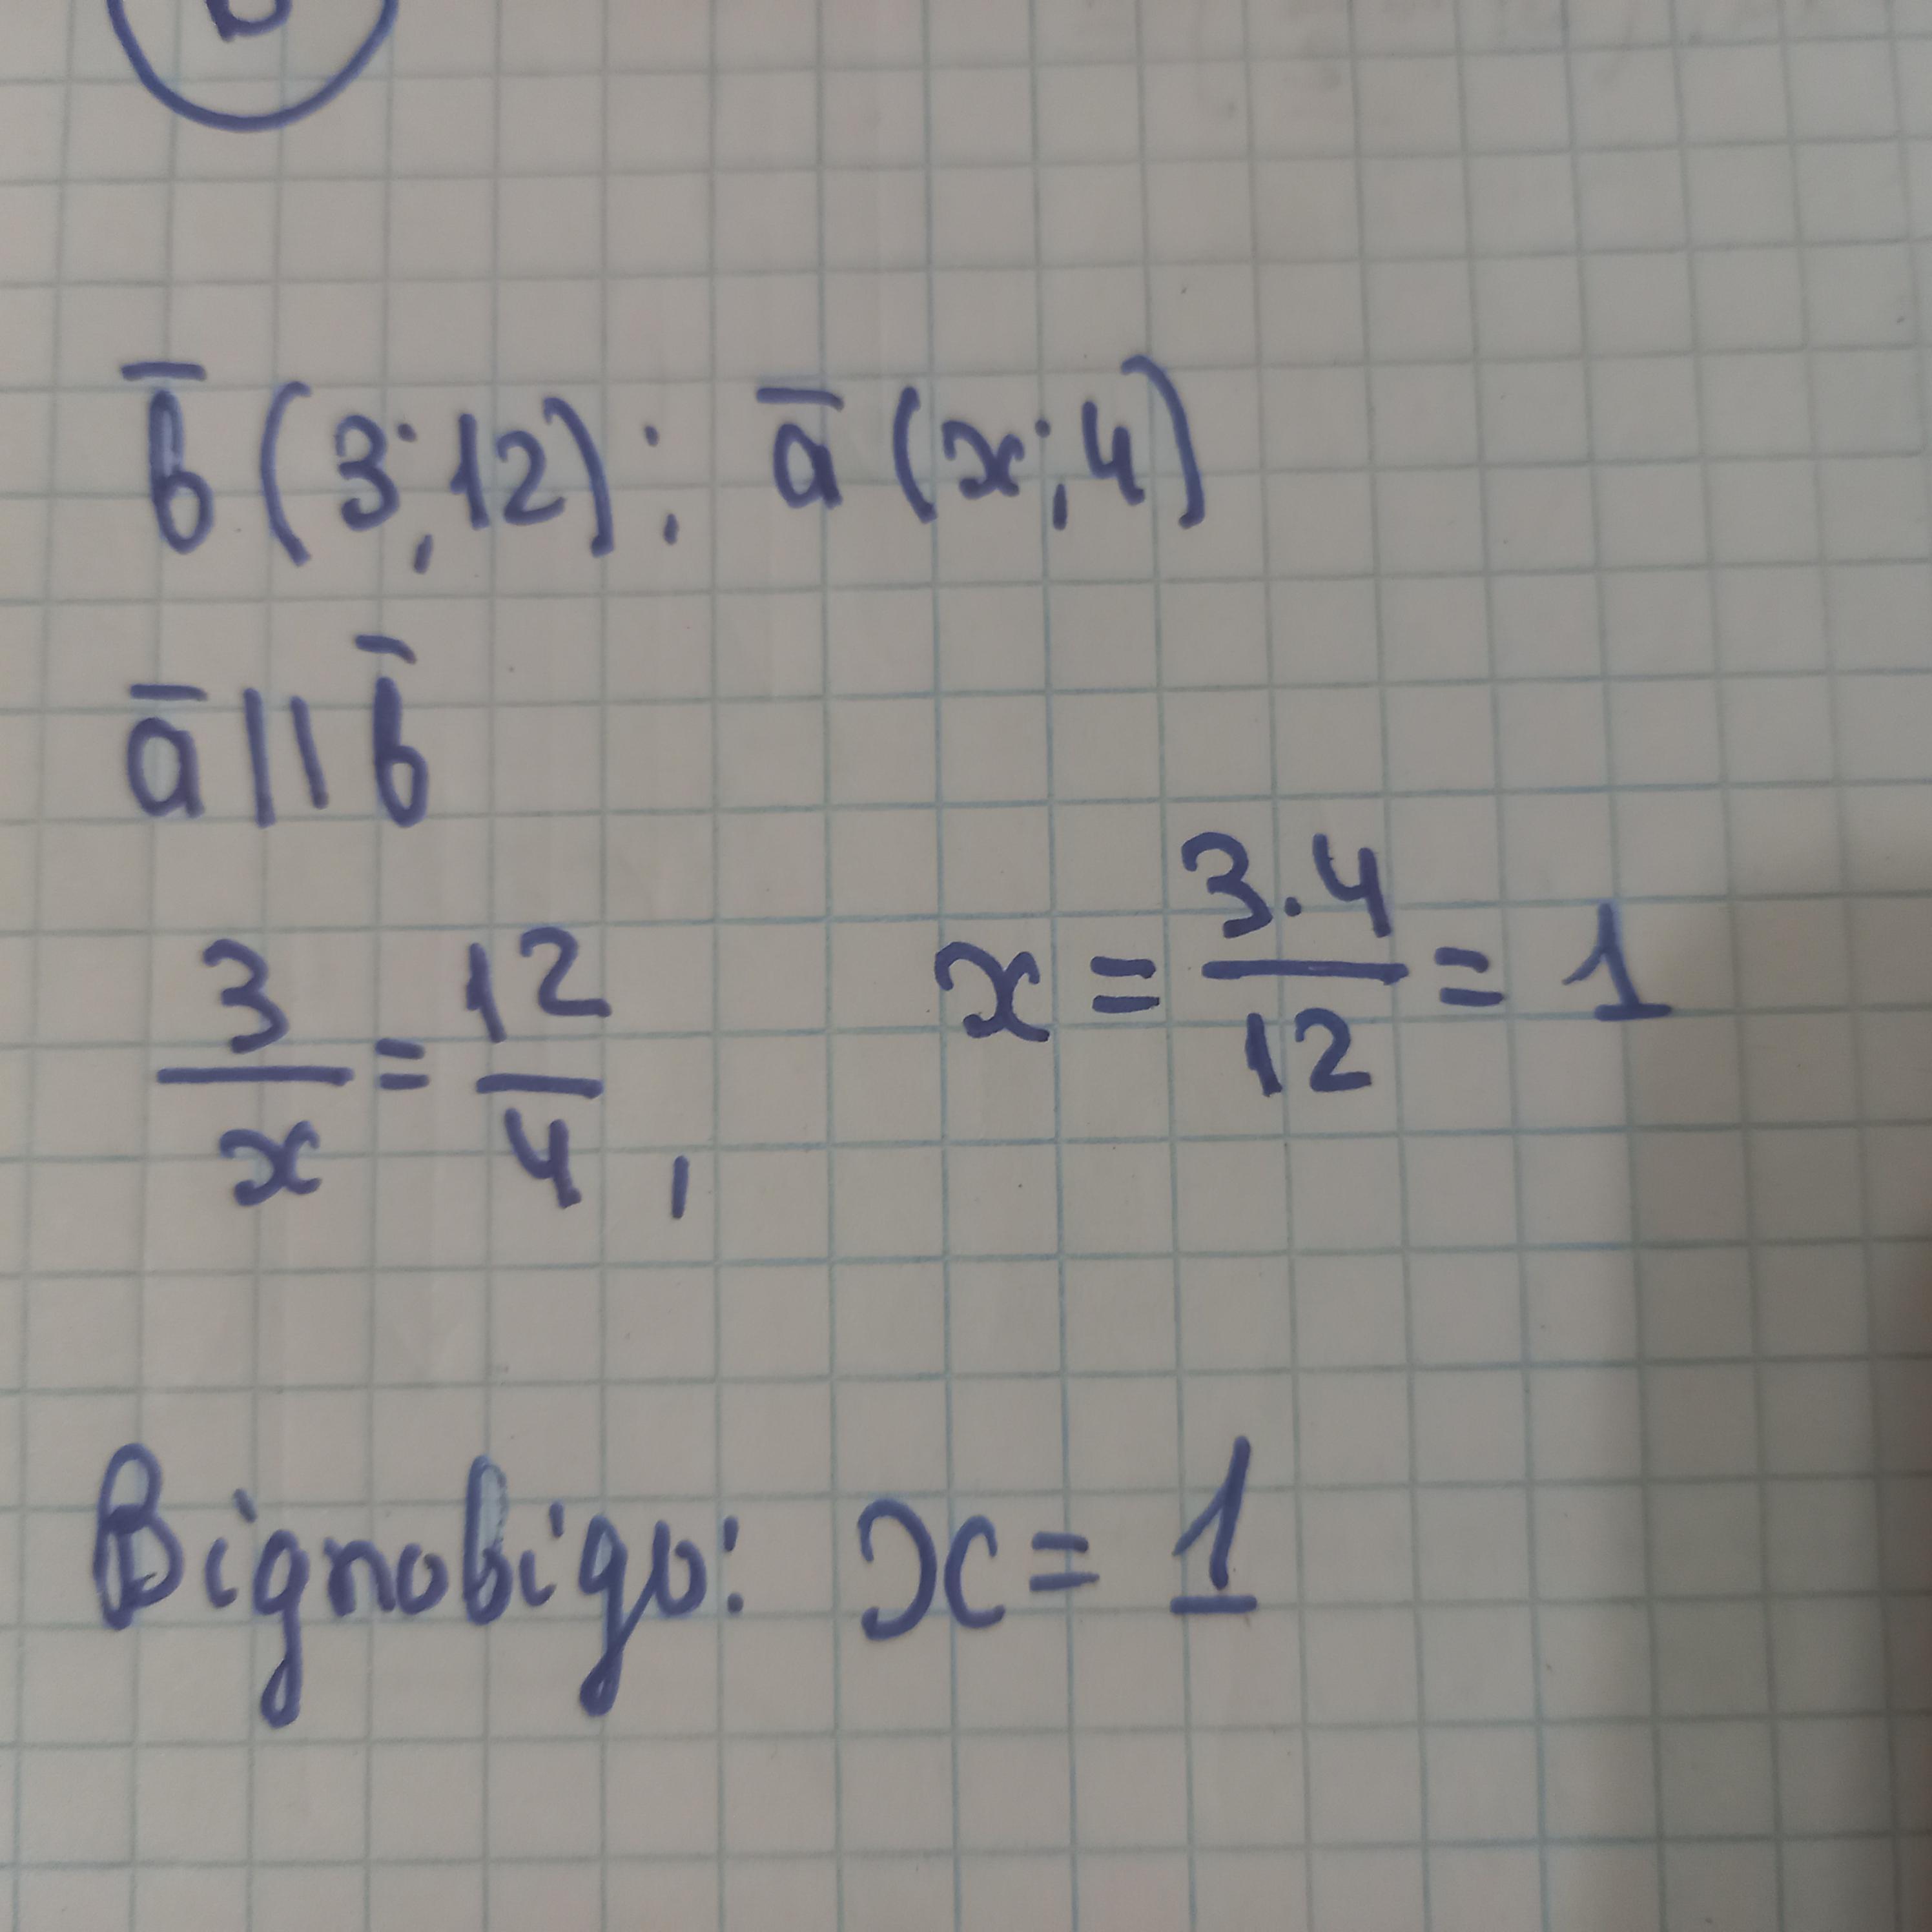 b̅ (3; 12); a̅ (x; 4)
a̅ || b̅
3/x = 12/4, x = 3·4/12 = 1
Відповідь: x = 1